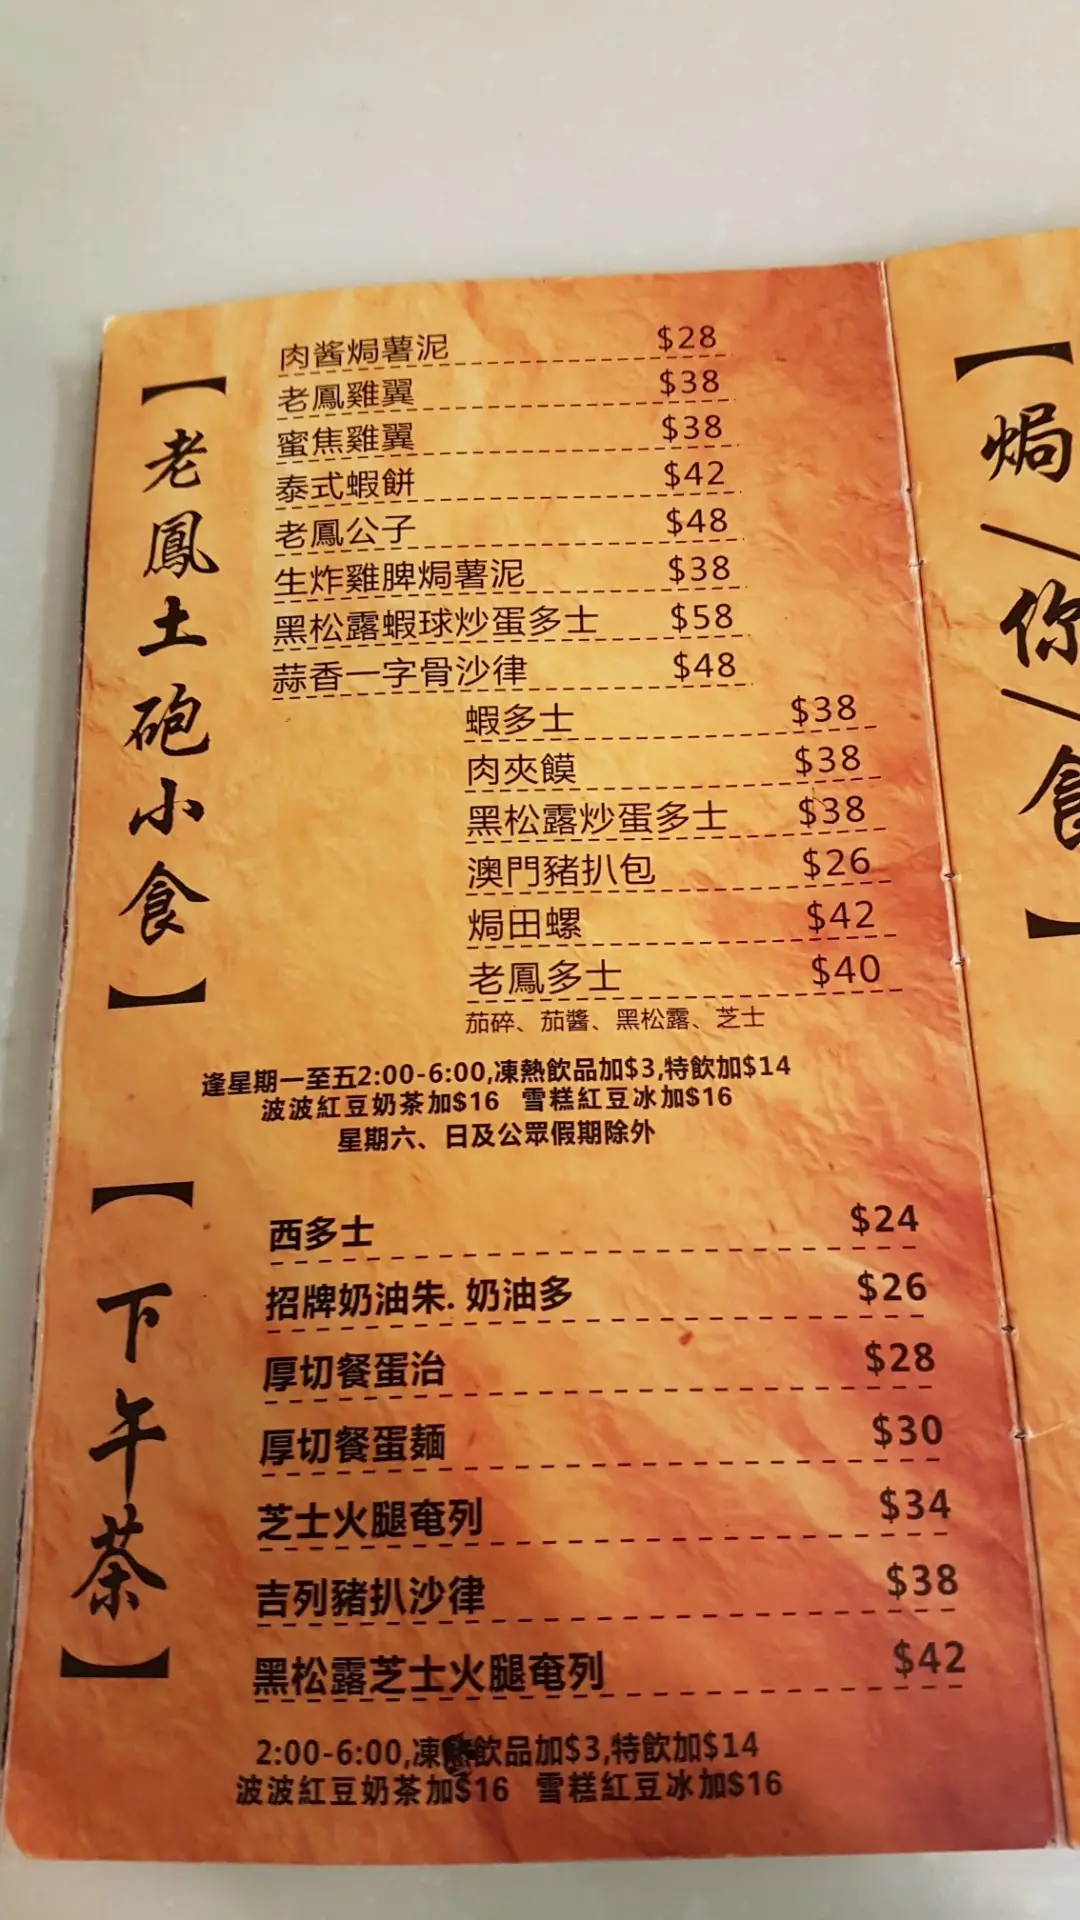 【老鳳土砲小食】
肉醬焗薯泥 $28
老鳳雞翼 $38
蜜焦雞翼 $38
泰式蝦餅 $42
老鳳公子 $48
生炸雞脾焗薯泥 $38
黑松露蝦球炒蛋多士 $58
蒜香一字骨沙律 $48
蝦多士 $38
肉夾饃 $38
黑松露炒蛋多士 $38
澳門豬扒包 $26
焗田螺 $42
老鳳多士 $40
茄碎、茄醬、黑松露、芝士
逢星期一至五2:00-6:00,凍熱飲品加$3,特飲加$14
波波紅豆奶茶加$16 雪糕紅豆冰加$16
星期六、日及公眾假期除外
【下午茶】
西多士 $24
招牌奶油朱. 奶油多 $26
厚切餐蛋治 $28
厚切餐蛋麵 $30
芝士火腿奄列 $34
吉列豬扒沙律 $38
黑松露芝士火腿奄列 $42
2:00-6:00,凍熱飲品加$3,特飲加$14
波波紅豆奶茶加$16 雪糕紅豆冰加$16
【焗/你/食】